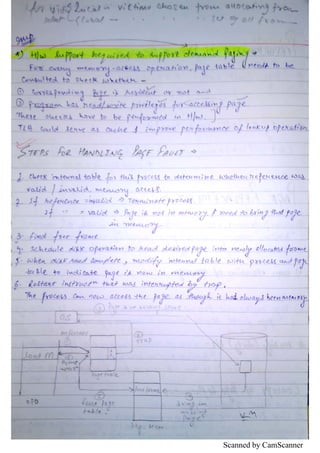 for victims chosen from allocating from
local / Global → set of all frames.
imp
*) H/w support required to support demand paging →
For every memory-access operation, page table need to be
Consulted to check whether -
① Corresponding Page is Resident or not and
② Program has read/write privileges for accessing page
These checks have to be performed in H/w.
TLB could serve as cache & improve performance of lookup operation
STEPS FOR HANDLING PAGE FAULT →
1. Check internal table for this process to determine whether reference was
valid / invalid memory access.
2. If Reference invalid → Terminate process.
If " = valid → Page is not in memory & need to bring that page
in memory
3. Find free frame
4. Schedule disk operation to Read desired page into newly allocated frame
5. When disk read complete, modify internal table with process and page
table to indicate page is now in memory
6. Restart instrucn that was interrupted by trap.
The process can now access the page as though it had always been in memory
OS
② trap
① reference
load M
page table
free frame
⑤ reset page table
④ bring in missing page
V.M
Scanned by CamScanner